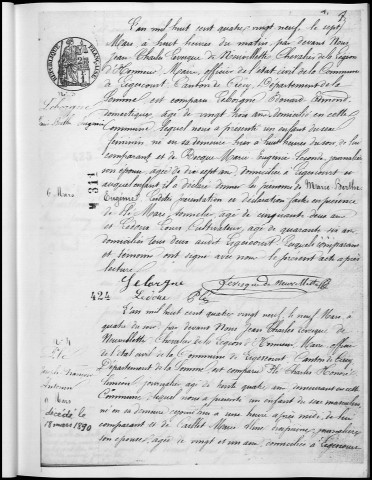 L'an mil huit cent quatre vingt neuf, le sept
Mars à huit heures du matin, par devant Nous
Jean Charles Levêque de Neuvillette Chevalier de la Légion
d'Honneur Maire, officier de l'état civil de la Commune
de Ligescourt, Canton de Crécy, Département de la
Somme, est comparu Leborgne Edouard
domestique, âgé de vingt trois ans domicilié en cette
Commune, lequel nous a présenté un enfant du sexe
féminin né en sa demeure hier à huit heures du soir, de lui
comparant et de Becque Marie Eugénie journalière
son épouse, âgée de dix sept ans, domiciliée à Ligescourt et
auquel enfant il a déclaré donner les prénoms de Marie Berthe
Eugénie. Lesdites présentation et déclaration faites en présence
de Mars, âgé de cinquante deux ans
et Ledoux Louis Cultivateur, âgé de quarante six ans
domiciliés tous deux audit Ligescourt, lesquels comparant
et témoins ont signé avec nous le présent acte après
lecture.
Leborgne
Marie Berthe Eugénie
6 Mars
311
424
Leborgne
Ledoux
Levêque de Neuvillette
L'an mil huit cent quatre vingt neuf, le neuf Mars, à
quatre du soir, par devant Nous Jean Charles Levêque de
Neuvillette Chevalier de la Légion d'Honneur Maire, officier
de l'état civil de la Commune de Ligescourt Canton de Crécy
Département de la Somme, est comparu Charles Honoré
journalier âgé de trente quatre ans demeurant en cette
Commune, lequel nous a présenté un enfant du sexe masculin,
né en sa demeure à une heure après midi, de lui
comparant et de Caillet Marie journalière
son épouse, âgée de vingt et un ans, domiciliée à Ligescourt
N° 4
Mars
décédé le
mars 1890